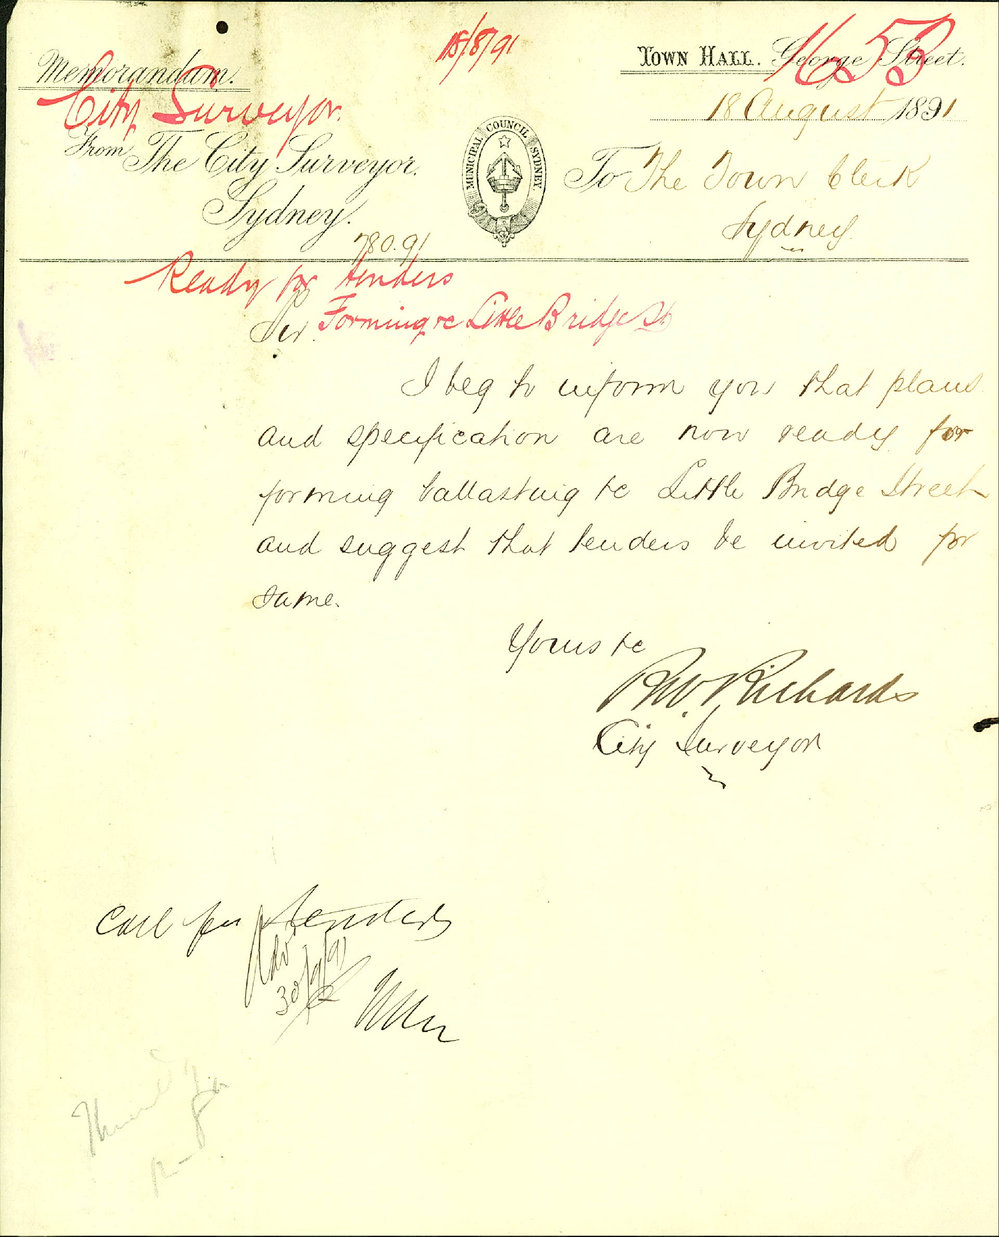 18/8/91
1653
Memorandum.
City Surveyor.
From The City Surveyor.
Sydney.
TOWN HALL. George Street.
18 August 1891
MUNICIPAL COUNCIL SYDNEY.
To The Town Clerk
Sydney
780.91
Ready for tenders
Forming &c Little Bridge St
Sir
I beg to inform you that plans
and specification are now ready for
forming ballasting &c Little Bridge Street
and suggest that tenders be invited for
same.
Yours &c
R W Richards
City Surveyor
Call for tenders
Adv
30/9/91